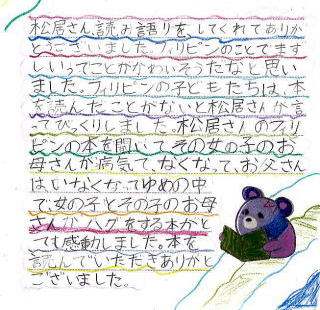 松居さん読み語りをしてくれてありが
とうございました。フィリピンのことでまず
しいってことがかわいそうだなと思い
ました。フィリピンの子どもたちは、本
を読んだことがないと松居さんが言
ってびっくりしました。松居さんのフィリ
ピンの本を聞いてその女の子のお
母さんが病気で、なくなって、お父さん
はいなくなってゆめの中
で、女の子とその子のお母
さんがハグをする本がと
ても感動しました。本を
読んでいただきありがと
ございました。